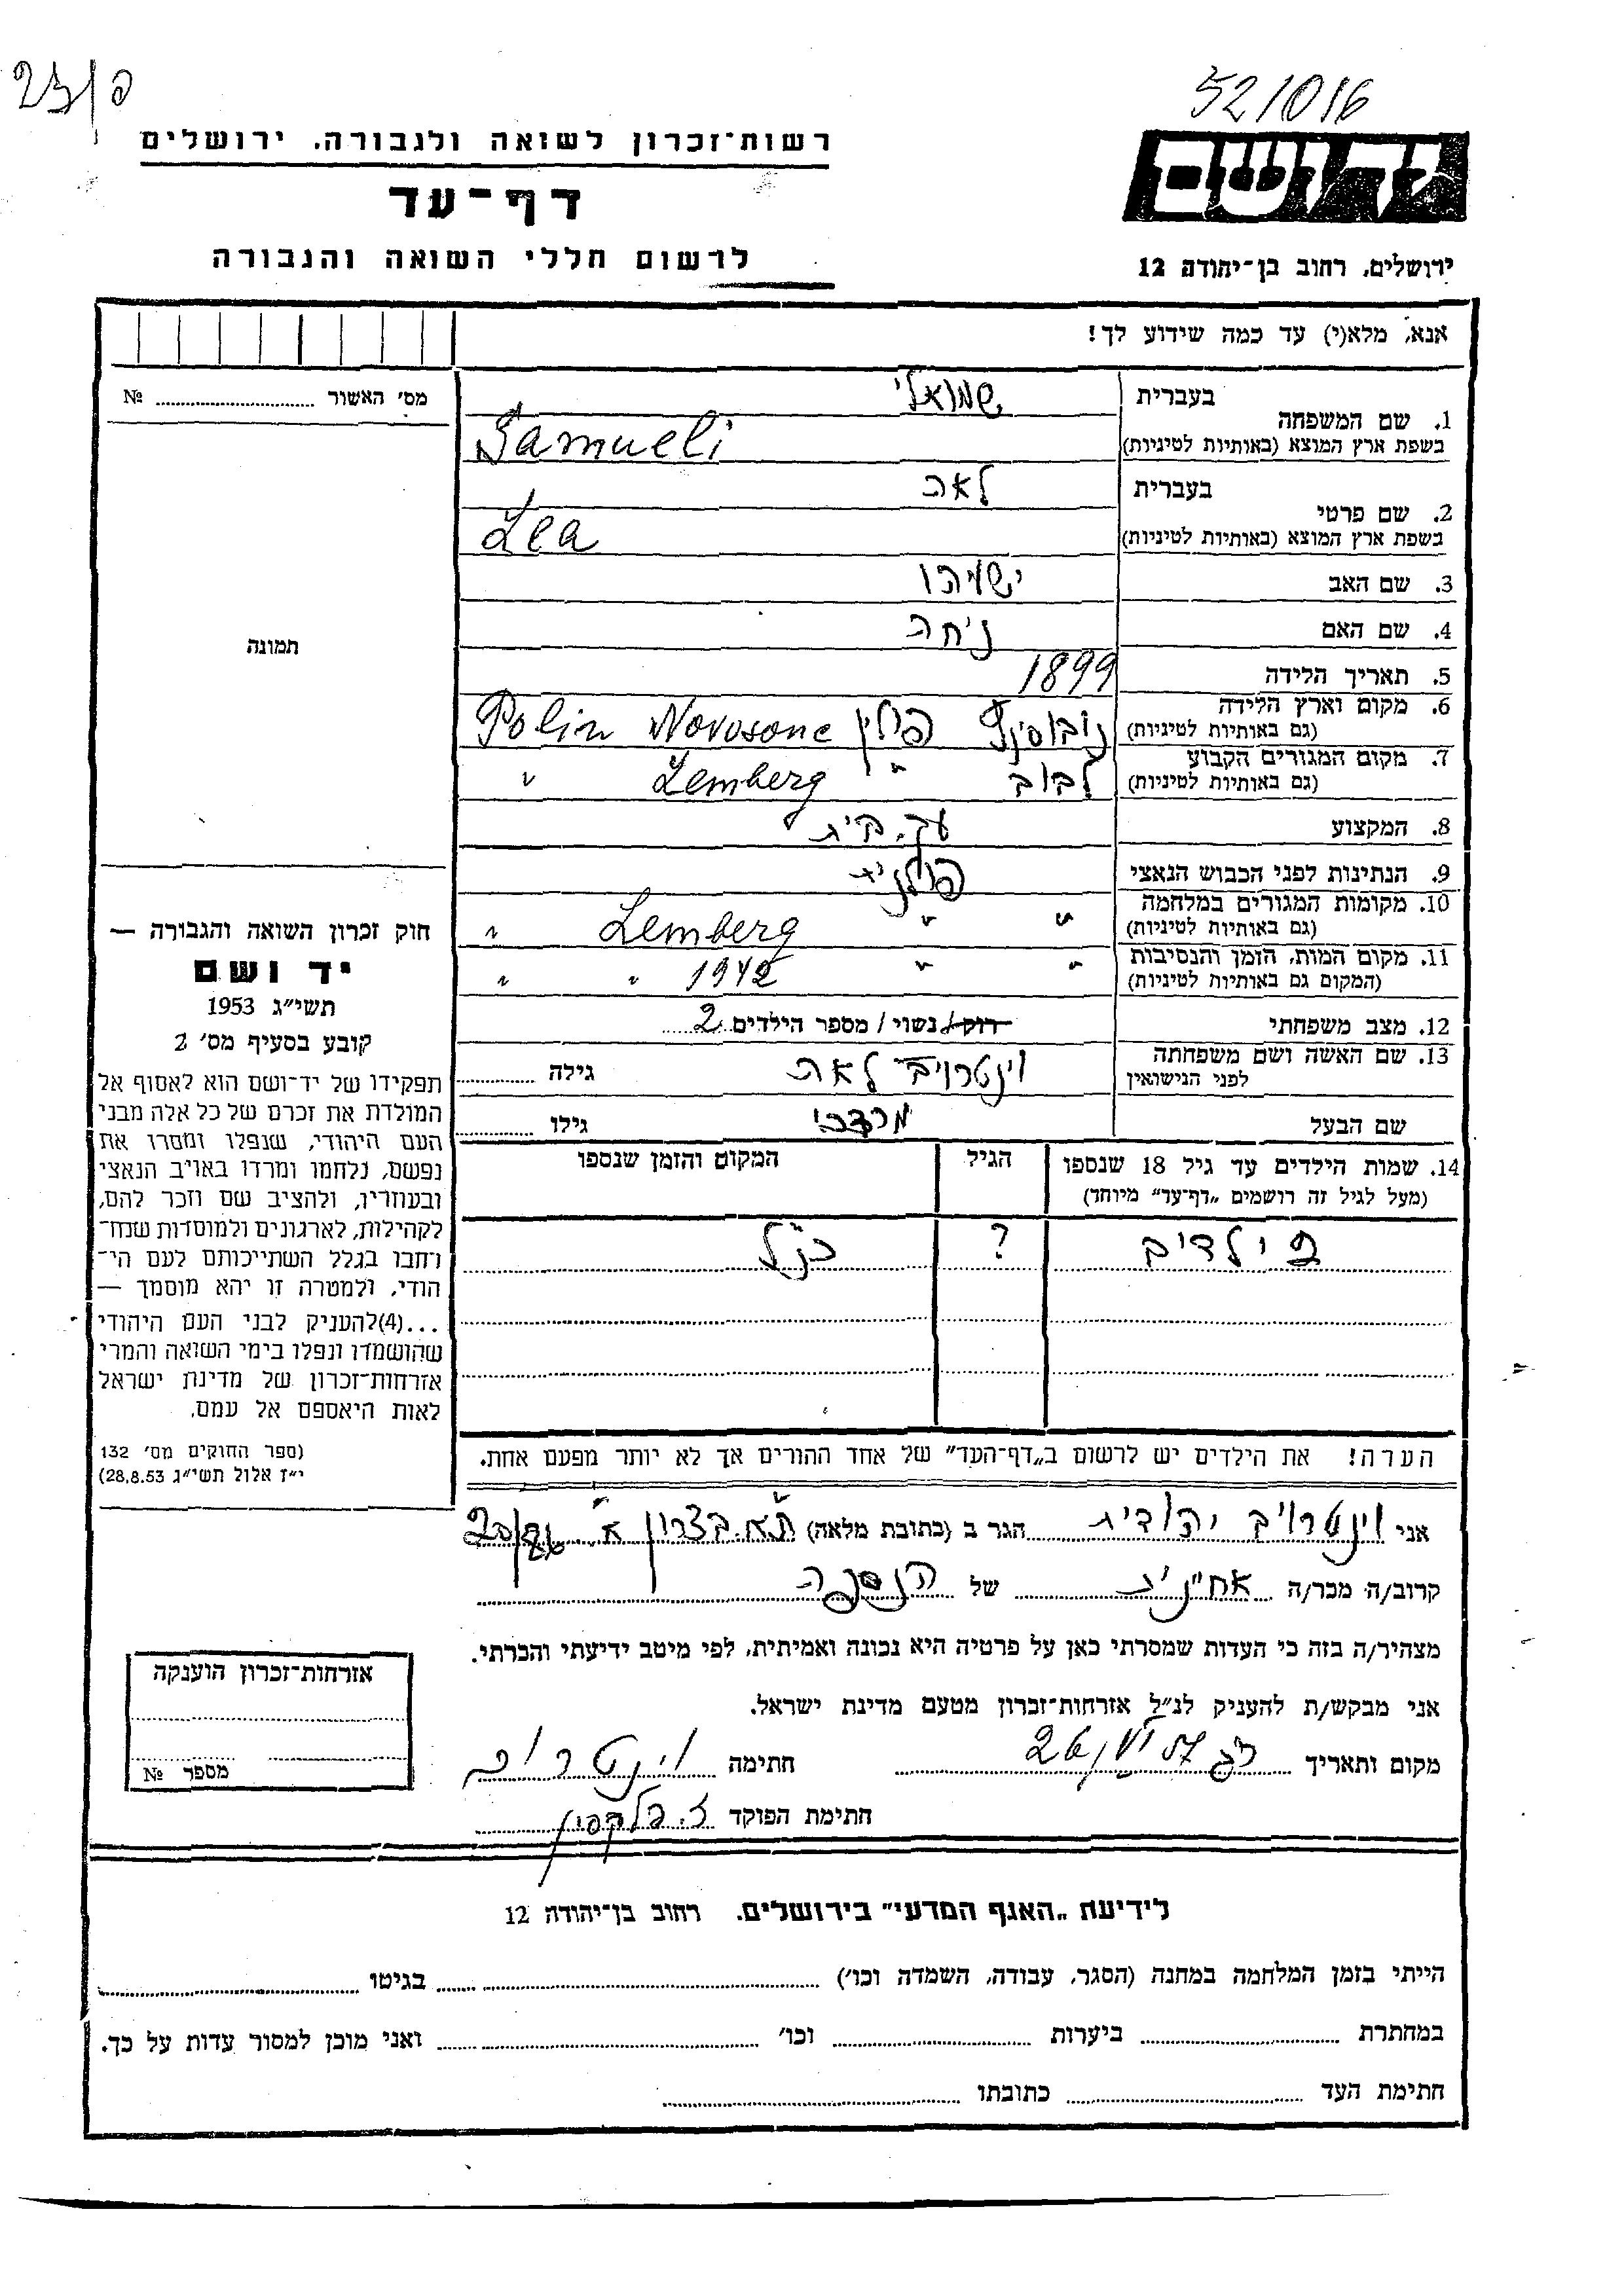 52/016
רשות־זכרון לשואה ולגבורה, ירושלים
ידושם
דף־עד
לרשום חללי השואה והגבורה
ירושלים, רחוב בן־יהודה 12
אנא, מלא(י) עד כמה שידוע לך!
מס' האשור № ............
תמונה
1. שם המשפחה
בעברית שמואלי
בשפת ארץ המוצא (באותיות לטיניות) Samueli
2. שם פרטי
בעברית לאה
בשפת ארץ המוצא (באותיות לטיניות) Lea
3. שם האב ישעיהו
4. שם האם
5. תאריך הלידה 1899
6. מקום וארץ הלידה
(גם באותיות לטיניות) פולין Novosone Polin
7. מקום המגורים הקבוע
(גם באותיות לטיניות) לבוב " Lemberg "
8. המקצוע עק. בית
9. הנתינות לפני הכבוש הנאצי פולנית
10. מקומות המגורים במלחמה
(גם באותיות לטיניות) " " Lemberg "
11. מקום המות, הזמן והנסיבות
(המקום גם באותיות לטיניות) " " 1942 " "
12. מצב משפחתי רוק/ נשוי / מספר הילדים 2
13. שם האשה ושם משפחתה
לפני הנישואין וינטרויב לאה גילה ............
שם הבעל מרדכי גילו ............
14. שמות הילדים עד גיל 18 שנספו
(מעל לגיל זה רושמים „דף־עד” מיוחד)
הגיל
המקום והזמן שנספו
ילדים ? כנ"ל
הערה! את הילדים יש לרשום ב„דף־העד” של אחד ההורים אך לא יותר מפעם אחת.
חוק זכרון השואה והגבורה —
יד ושם
תשי״ג 1953
קובע בסעיף מס' 2
תפקידו של יד־ושם הוא לאסוף אל
המולדת את זכרם של כל אלה מבני
העם היהודי, שנפלו ומסרו את
נפשם, נלחמו ומרדו באויב הנאצי
ובעוזריו, ולהציב שם וזכר להם,
לקהילות, לארגונים ולמוסדות שנח־
רחבו בגלל השתייכותם לעם הי־
הודי, ולמטרה זו יהא מוסמך —
...(4)להעניק לבני העם היהודי
שהושמדו ונפלו בימי השואה והמרי
אזרחות־זכרון של מדינת ישראל
לאות היאספם אל עמם.
(ספר החוקים מס' 132
י״ז אלול תשי״ג 28,8.53)
אני וינטרויב יהודית הגר ב (כתובת מלאה) ת"א. בצרון
קרוב/ה מכר/ה אחינית של הנספה
מצהיר/ה בזה כי העדות שמסרתי כאן על פרטיה היא נכונה ואמיתית, לפי מיטב ידיעתי והכרתי.
אני מבקש/ת להעניק לנ״ל אזרחות־זכרון מטעם מדינת ישראל.
מקום ותאריך חתימה וינטרויב
חתימת הפוקד
אזרחות־זכרון הוענקה
מספר №
לידיעת „האגף המדעי” בירושלים. רחוב בן־יהודה 12
הייתי בזמן המלחמה במחנה (הסגר, עבודה, השמדה וכו') ............ בגיטו ............
במחתרת ............ ביערות ............ וכו' ............ ואני מוכן למסור עדות על כך.
חתימת העד ............ כתובתו ............